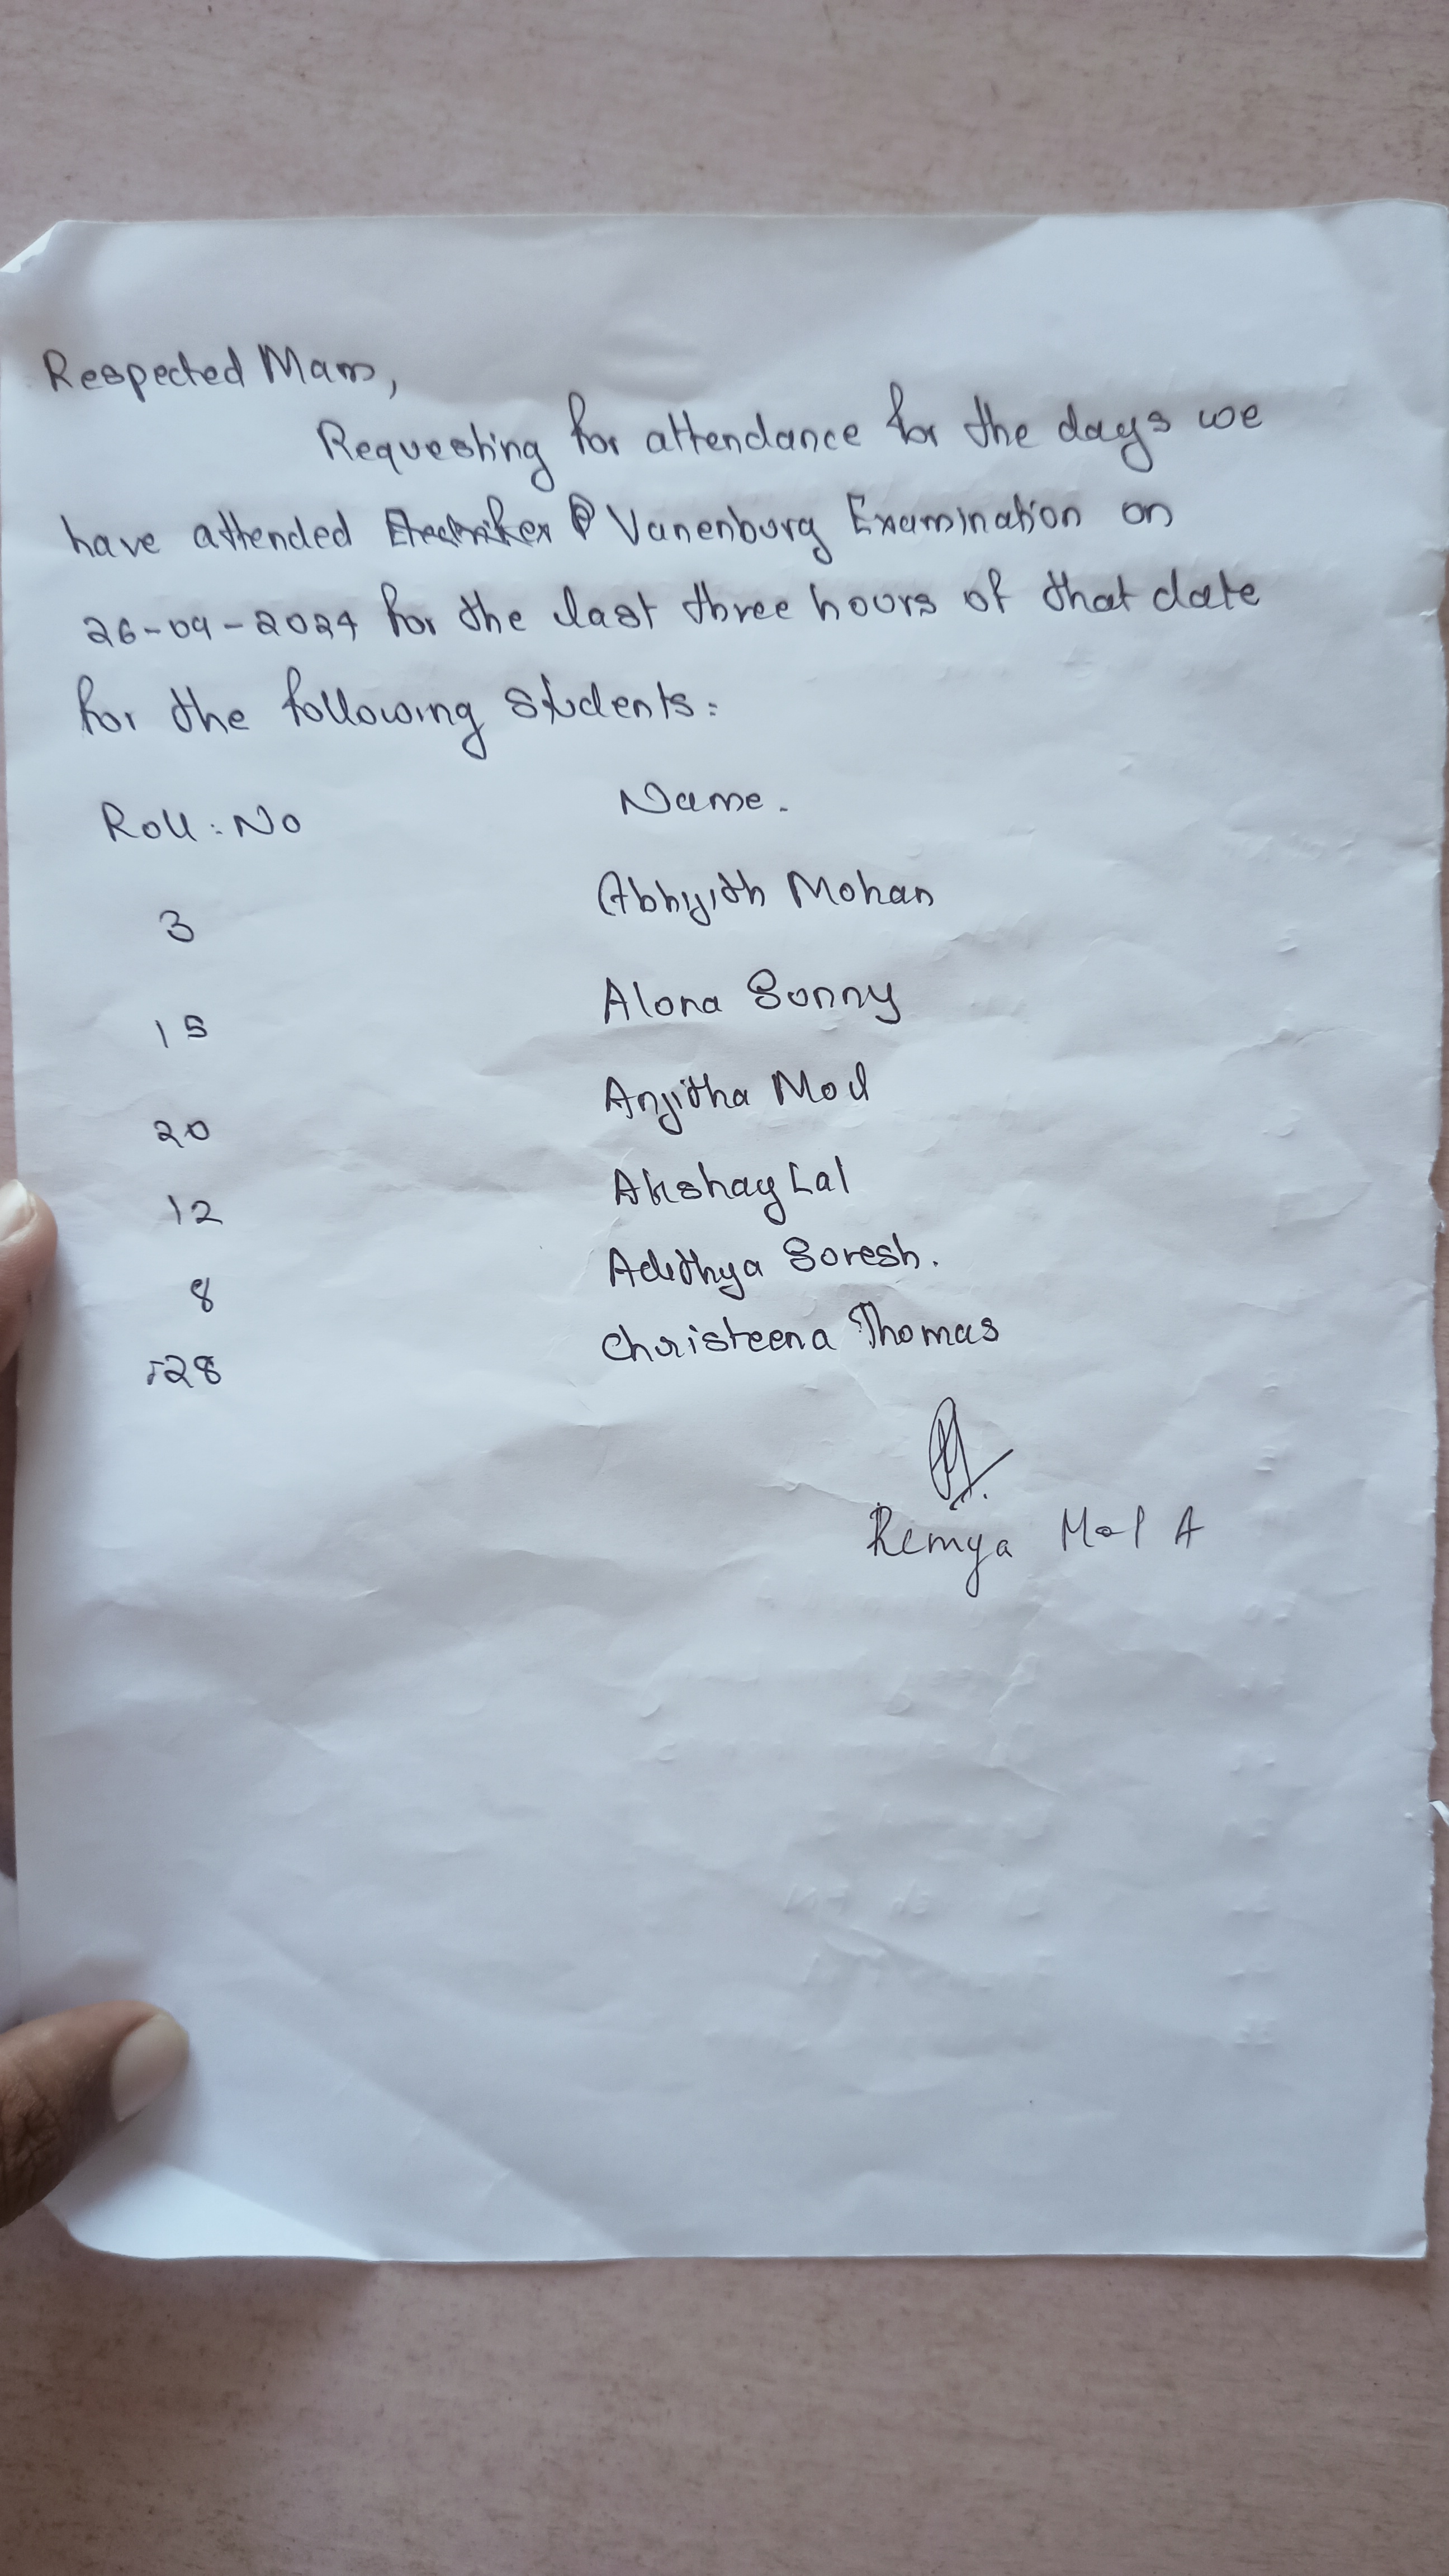 Respected Mam,
Requesting for attendance for the days we
have attended Vanenburg Examination on
26-09-2024 for the last three hours of that date
for the following students:
Roll: No Name.
3 Abhijith Mohan
15 Alona Sonny
20 Anjitha Mol
12 Akshay Lal
8 Adithya Suresh.
28 Christeena Thomas
Remya Mol A